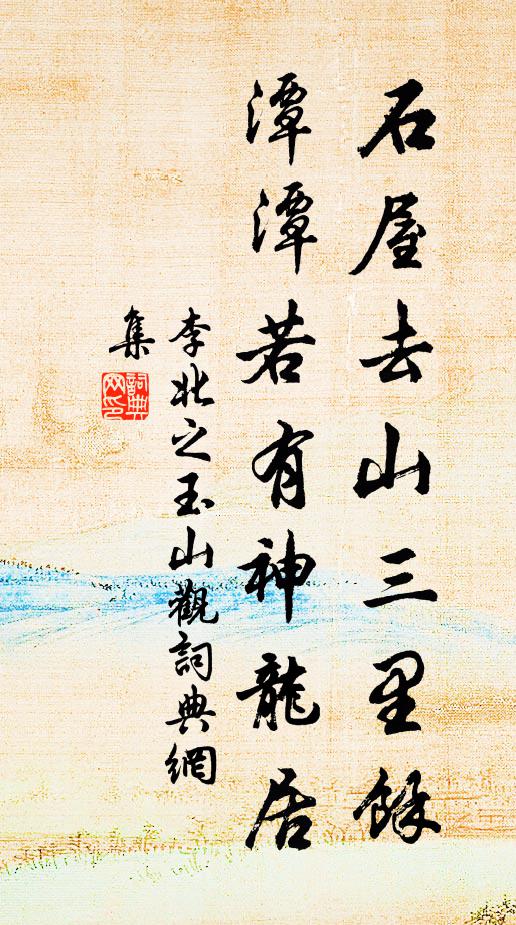 石屋去山三里餘
潭潭若有神龍居
李北之玉山觀詞典網
集
詞典
网印